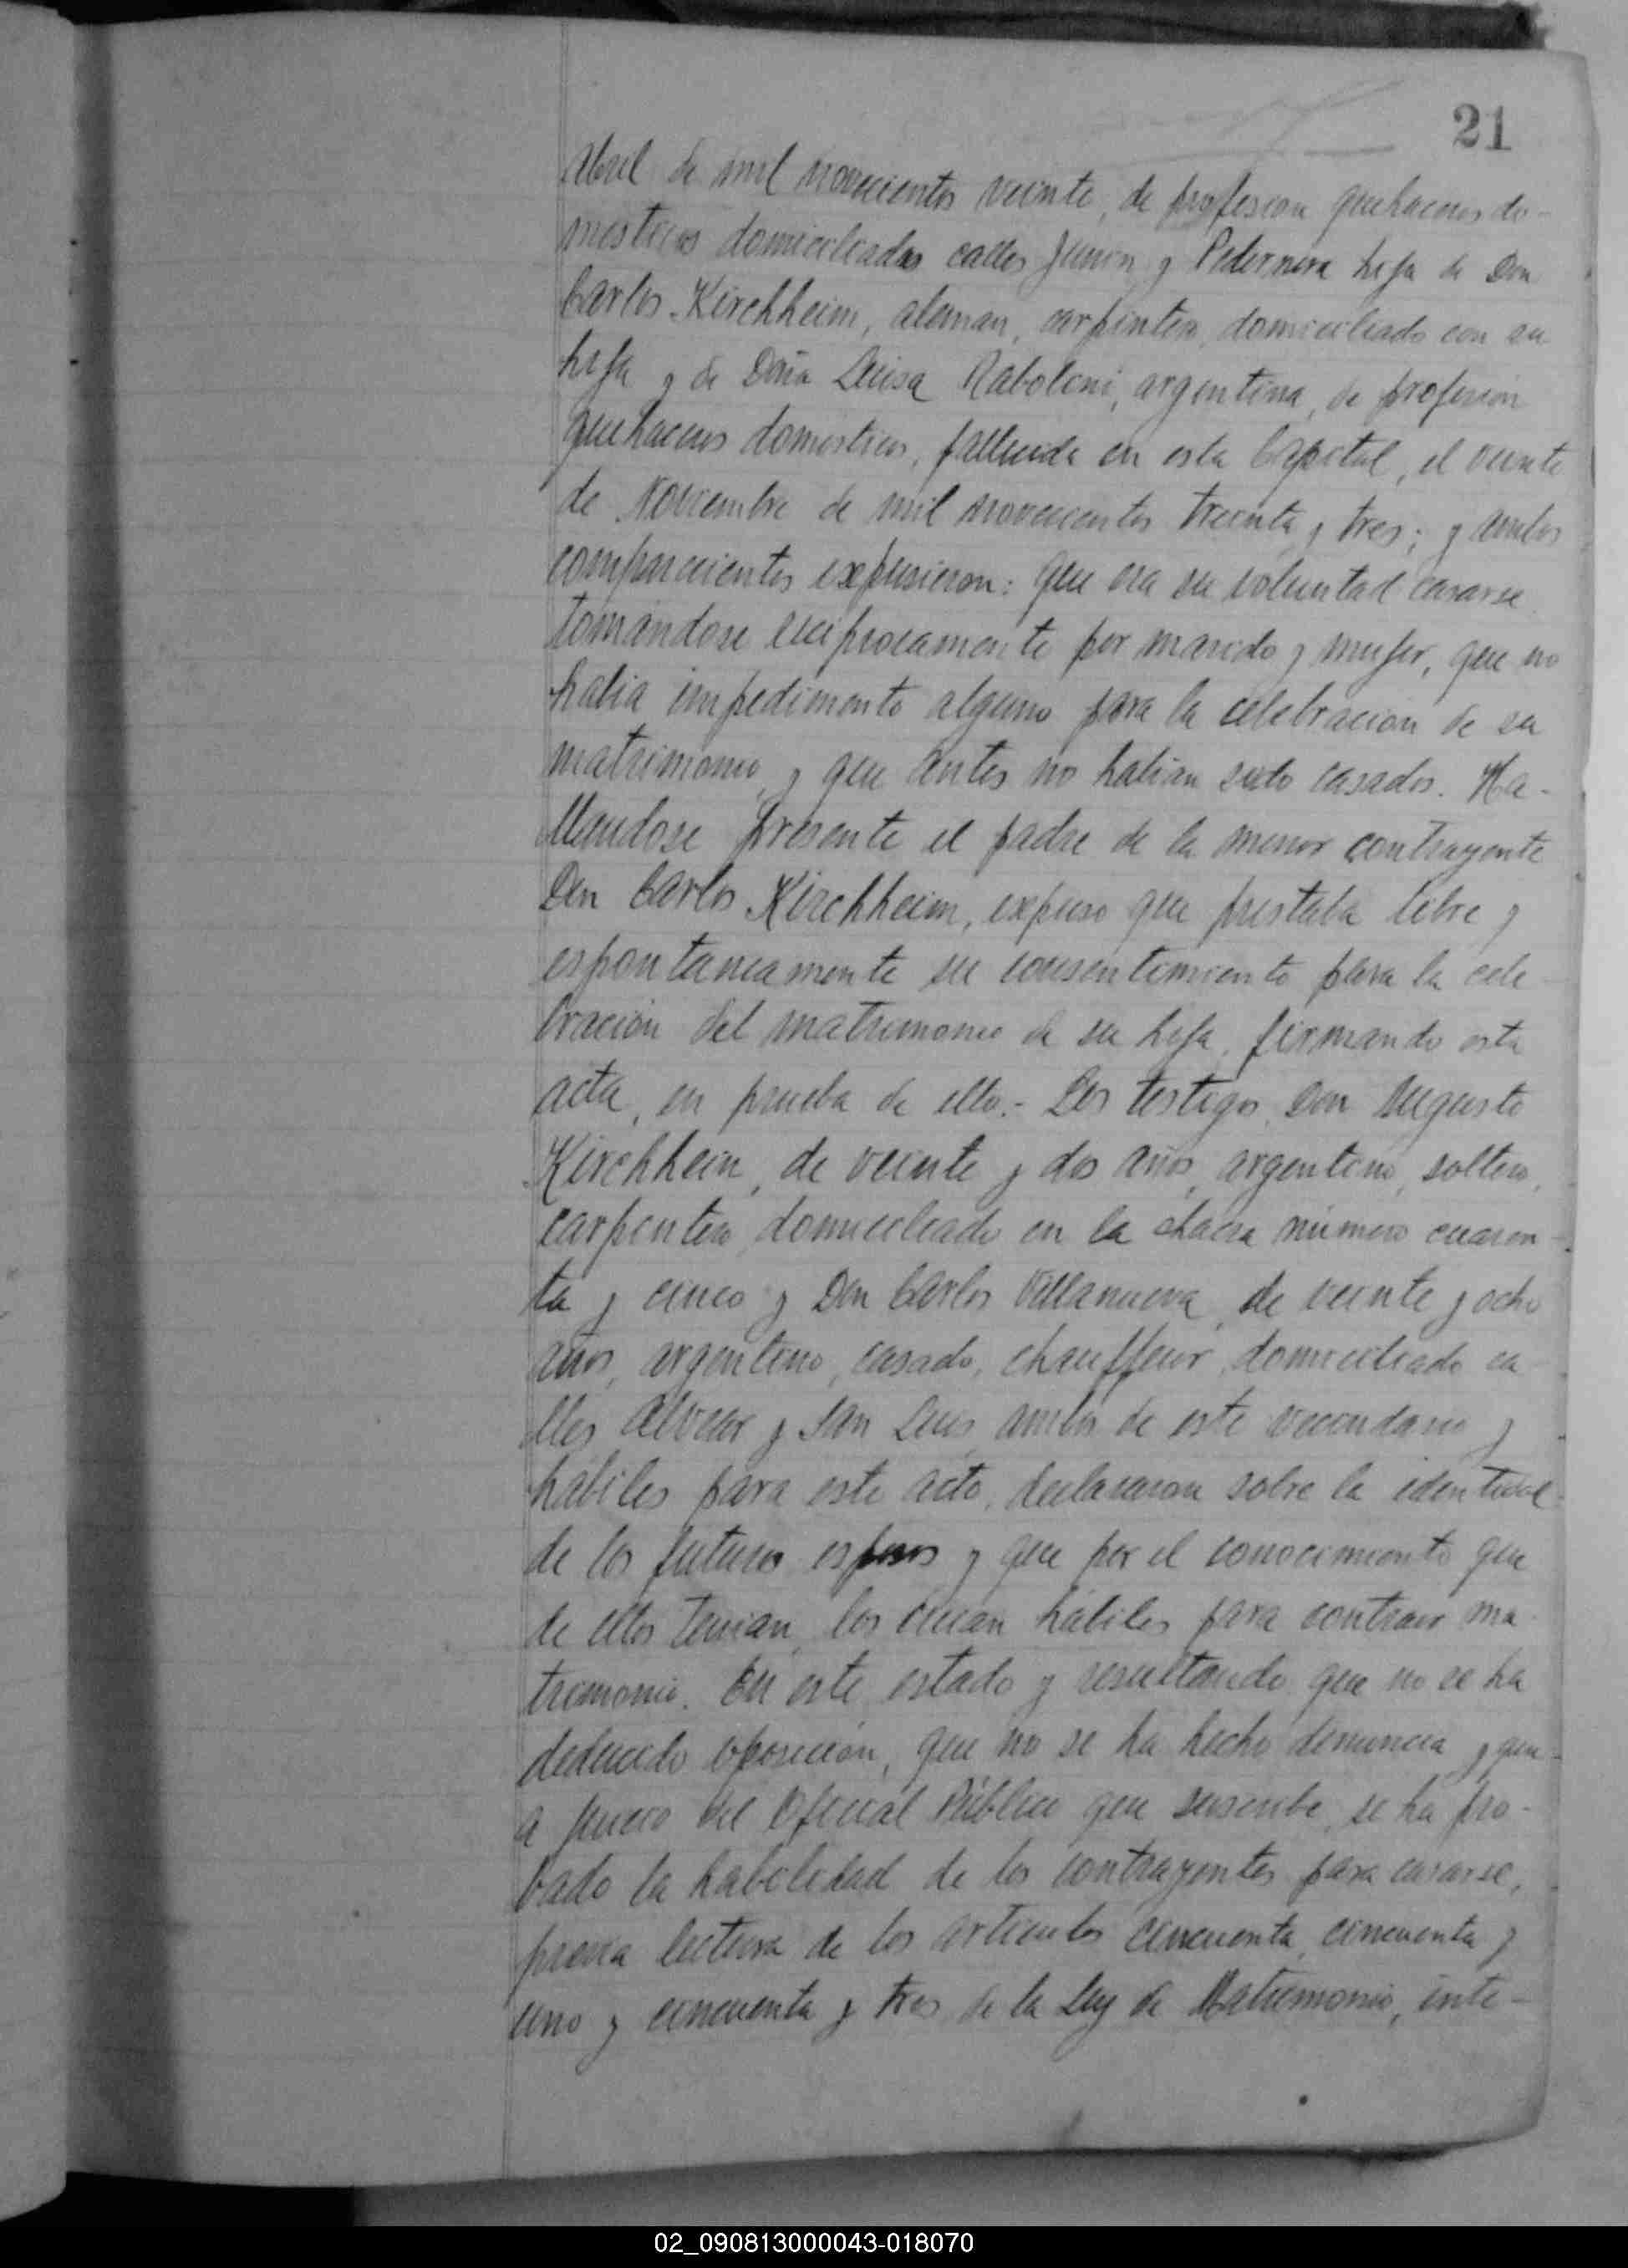 21
Abril de mil novecientos veinte, de profesion quehaceres do-
mesticos domiciliados calles Junin y Pedernera hija de Don
Carlos Kirchheim, aleman, carpintero, domiciliado con su
hija y de Doña Luisa Raboloni, argentina, de profesion
quehaceres domesticos, fallecida en esta Capital, el veinte
de Noviembre de mil novecientos treinta y tres; y ambos
comparecientes expusieron: que era su voluntad casarse
tomandose reciprocamente por marido y mujer, que no
habia impedimento alguno para la celebracion de su
matrimonio, y que antes no habian sido casados. Ha-
llandose presente el padre de la menor contrayente
Don Carlos Kirchheim, expuso que prestaba libre y
espontaneamente su consentimiento para la cele-
bracion del matrimonio de su hija, firmando esta
acta, en prueba de ello.- Los testigos, Don Augusto
Kirchhein, de veinte y dos años, argentino, soltero,
carpintero, domiciliado en la chacra número cuaren-
ta y cinco y Don Carlos Villanueva, de veinte y ocho
años, argentino, casado, chauffeur, domiciliado ca-
lles Alvear y San Luis, ambos de este vecindario y
hábiles para este acto, declararon sobre la identidad
de los futuros esposos y que por el conocimiento que
de ellos tenian, los creian hábiles para contraer ma-
trimonio. En este estado y resultando que no se ha
deducido oposicion, que no se ha hecho denuncia y que
a juicio del Oficial Público que suscribe, se ha pro-
bado la habilidad de los contrayentes para casarse,
previa lectura de los articulos cincuenta, cincuenta y
uno y cincuenta y tres de la Ley de Matrimonio, inte-
02_090813000043-018070